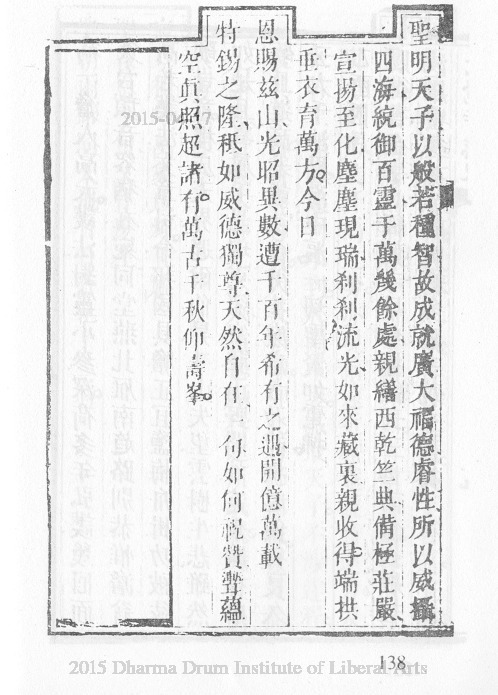 聖明天子以般若種智故成就廣大福德睿性所以威攝
四海統御百靈于萬幾餘處親繙西乾竺典備極莊嚴
宣揚至化塵塵現瑞剎剎流光如來藏裏親收得端拱
垂衣育萬方。今日
恩賜茲山光昭異數遭千百年希有之遇開億萬載
特錫之隆秪如威德獨尊天然自在一句如何祝贊聻蘊
空真照超諸有萬古千秋仰壽峯。
138
2015 Dharma Drum Institute of Liberal Arts